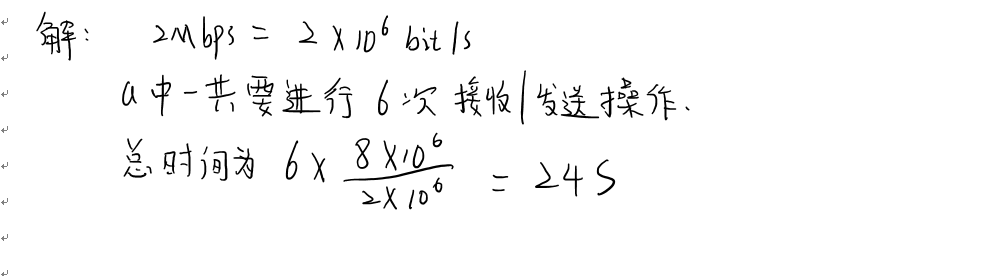 解: 2Mbps = 2×10⁶ bit/s
a中一共要进行6次接收/发送操作.
总时间为 6 × \frac{8×10⁶}{2×10⁶} = 24S